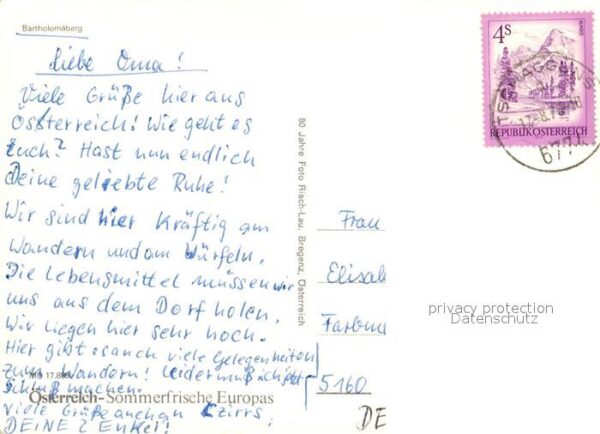 Bartholomäberg
Liebe Oma!
Viele Grüße hier aus
Osterreich! Wie geht es
Euch? Hast nun endlich
Deine geliebte Ruhe!
Wir sind hier Kräftig am
Wandern und am Würfeln.
Die Lebensmittel müssen wir
uns aus dem Dorf holen.
Wir liegen hier sehr hoch.
Hier gibt es auch viele Gelegenheiten
zum Wandern! Leider muß ich jetzt
Schluß machen.
Österreich-Sommerfrische Europas
viele Grüße auch an
DEINE 2 Enkel!
80 Jahre Foto Risch-Lau, Bregenz, Österreich
4S
REPUBLIK ÖSTERREICH
TSCHAGGUNS
6774
Frau
Elisab
5160
DE
privacy protection
Datenschutz